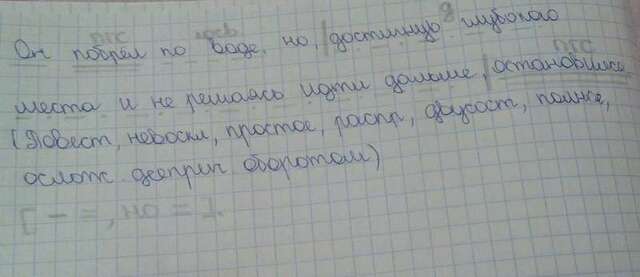 пгс гсв д
Он побрёл по воде, но, достигнув глубокого
пгс
места и не решаясь идти дальше, остановился
(Повест, невоскл, простое, распр, двусост, полное,
ослож. дееприч оборотом)
[ – =, но = ].